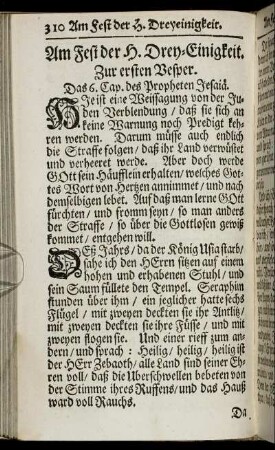 310 Am Fest der H. Dreyeinigkeit.
Am Fest der H. Drey-Einigkeit.
Zur ersten Vesper.
Das 6. Cap. des Propheten Jesaiä.
HIe ist eine Weissagung von der Jü-
den Verblendung / daß sie sich an
keine Warnung noch Predigt keh-
ren werden. Darum müsse auch endlich
die Straffe folgen / daß ihr Land verwüstet
und verheeret werde. Aber doch werde
GOtt sein Häufflein erhalten / welches Got-
tes Wort von Hertzen annimmet / und nach
demselbigen lebet. Auf daß man lerne GOtt
fürchten / und fromm seyn / so man anders
der Straffe / so über die Gottlosen gewiß
kommet / entgehen will.
DEß Jahrs / da der König Usia starb /
sahe ich den HErrn sitzen auf einem
hohen und erhabenen Stuhl / und
sein Saum füllete den Tempel. Seraphim
stunden über ihm / ein jeglicher hatte sechs
Flügel / mit zweyen deckten sie ihr Antlitz /
mit zweyen deckten sie ihre Füsse / und mit
zweyen flogen sie. Und einer rieff zum an-
dern / und sprach: Heilig / heilig / heilig ist
der HErr Zebaoth / alle Land sind seiner Eh-
ren voll / daß die Uberschwellen bebeten von
der Stimme ihres Ruffens / und das Hauß
ward voll Rauchs.
Da